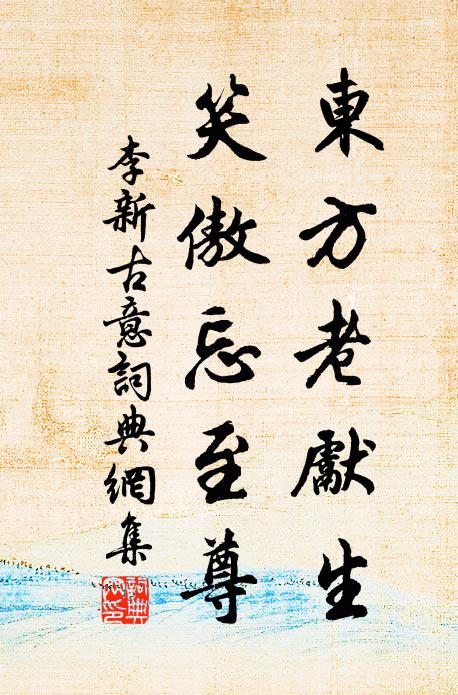 東方老獻生
笑傲忘至尊
李新古意詞典網集